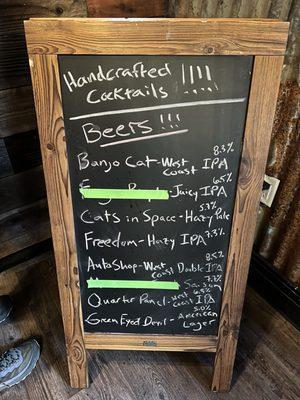 Handcrafted !!!!
Cocktails
Beers !!!
8.3%
Banjo Cat - West Coast IPA
6.5%
- Juicy IPA
5.7%
Cats in Space - Hazy Pale
7.3%
Freedom - Hazy IPA
8.5%
AutoShop - West Coast Double IPA
Saison
Quarter Panel - West Coast IPA
5.0%
Green Eyed Devil - American Lager